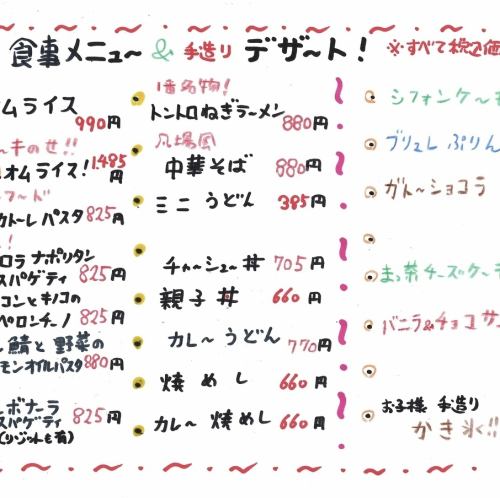 食事メニュー & 手造り デザート! ※すべて税込価
ムライス
990円
ーキのせ!!
オムライス! 1.485円
シーフード
カトーレ パスタ 825円
!
ロラ ナポリタン
スパゲティ 825円
コンとキノコの
ペロンチーノ 825円
鯖と 野菜の
モンオイルパスタ 880円
ルボナーラ
スパゲティ 825円
(リゾットも有)
1番名物!
トントロねぎラーメン 880円
八場風
中華そば 880円
ミニ うどん 385円
チャーシュー丼 705円
親子丼 660円
カレーうどん 770円
焼めし 660円
カレー 焼めし 660円
シフォンケーキ
ブリュレ ぷりん
ガトーショコラ
まっ茶チーズケーキ
バニラ&チョコ サ
お子様 手造り
かき氷!!